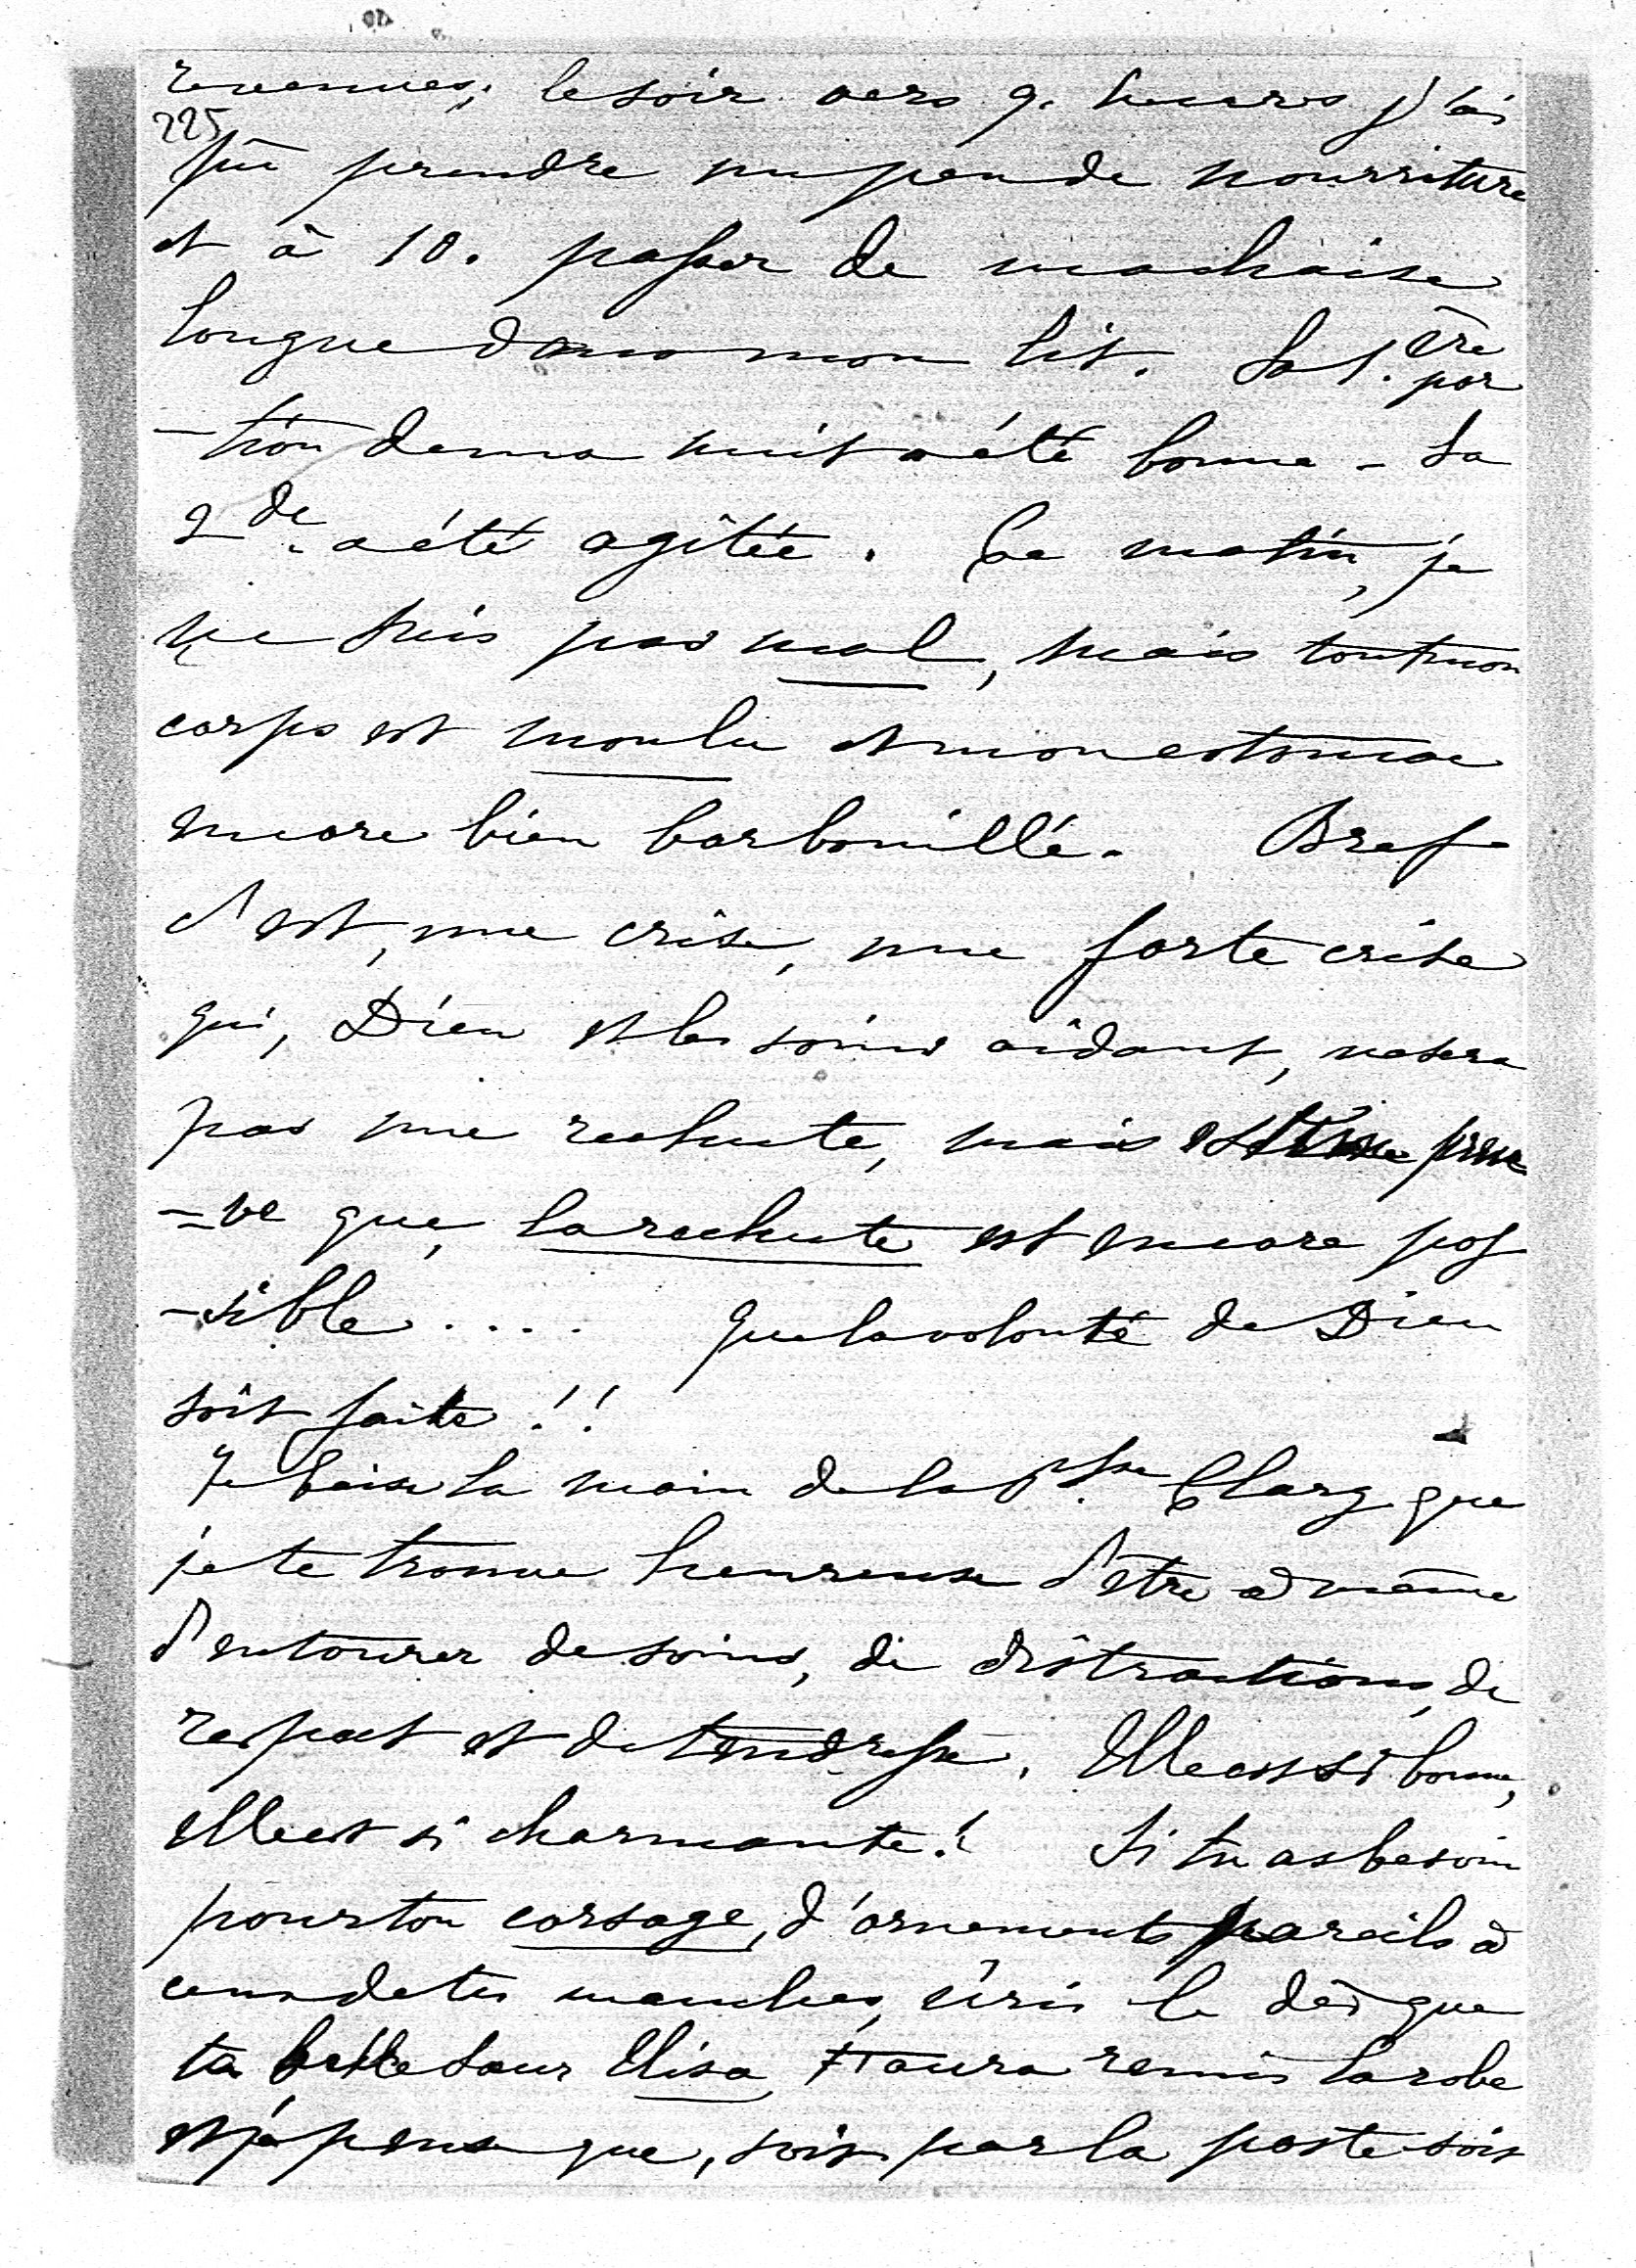 revenues; le soir vers 9. heures j'ai
225
pû prendre un peu de nourriture
et à 10. passer de ma chaise
longue dans mon lit. La 1.ère por
-tion de ma nuit a été bonne - La
2de. a été agîtée. Ce matin, je
ne suis pas mal, mais tout mon
corps est moulu et mon estomac
encore bien barbouillé. Bref
c'est, une crise, une forte crise
qui, Dieu et les soins aîdant, ne sera
pas une rechute, mais est une preu
=ve que, la rechute est encore pos
-sible .... que la volonté de Dieu
soit faite!!
Je baise la main de la Psse Clary que
je te trouve heureuse d'être à même
d'entourer de soins, de distractions, de
respect et de tendresse. Elle est si bonne,
elle est si charmante! Si tu as besoin
pour ton corsage, d'ornements pareils à
ceux de tes manches, écris le dès que
ta belle soeur Elisa t'aura remis la robe
et je pense que, soit par la poste soit